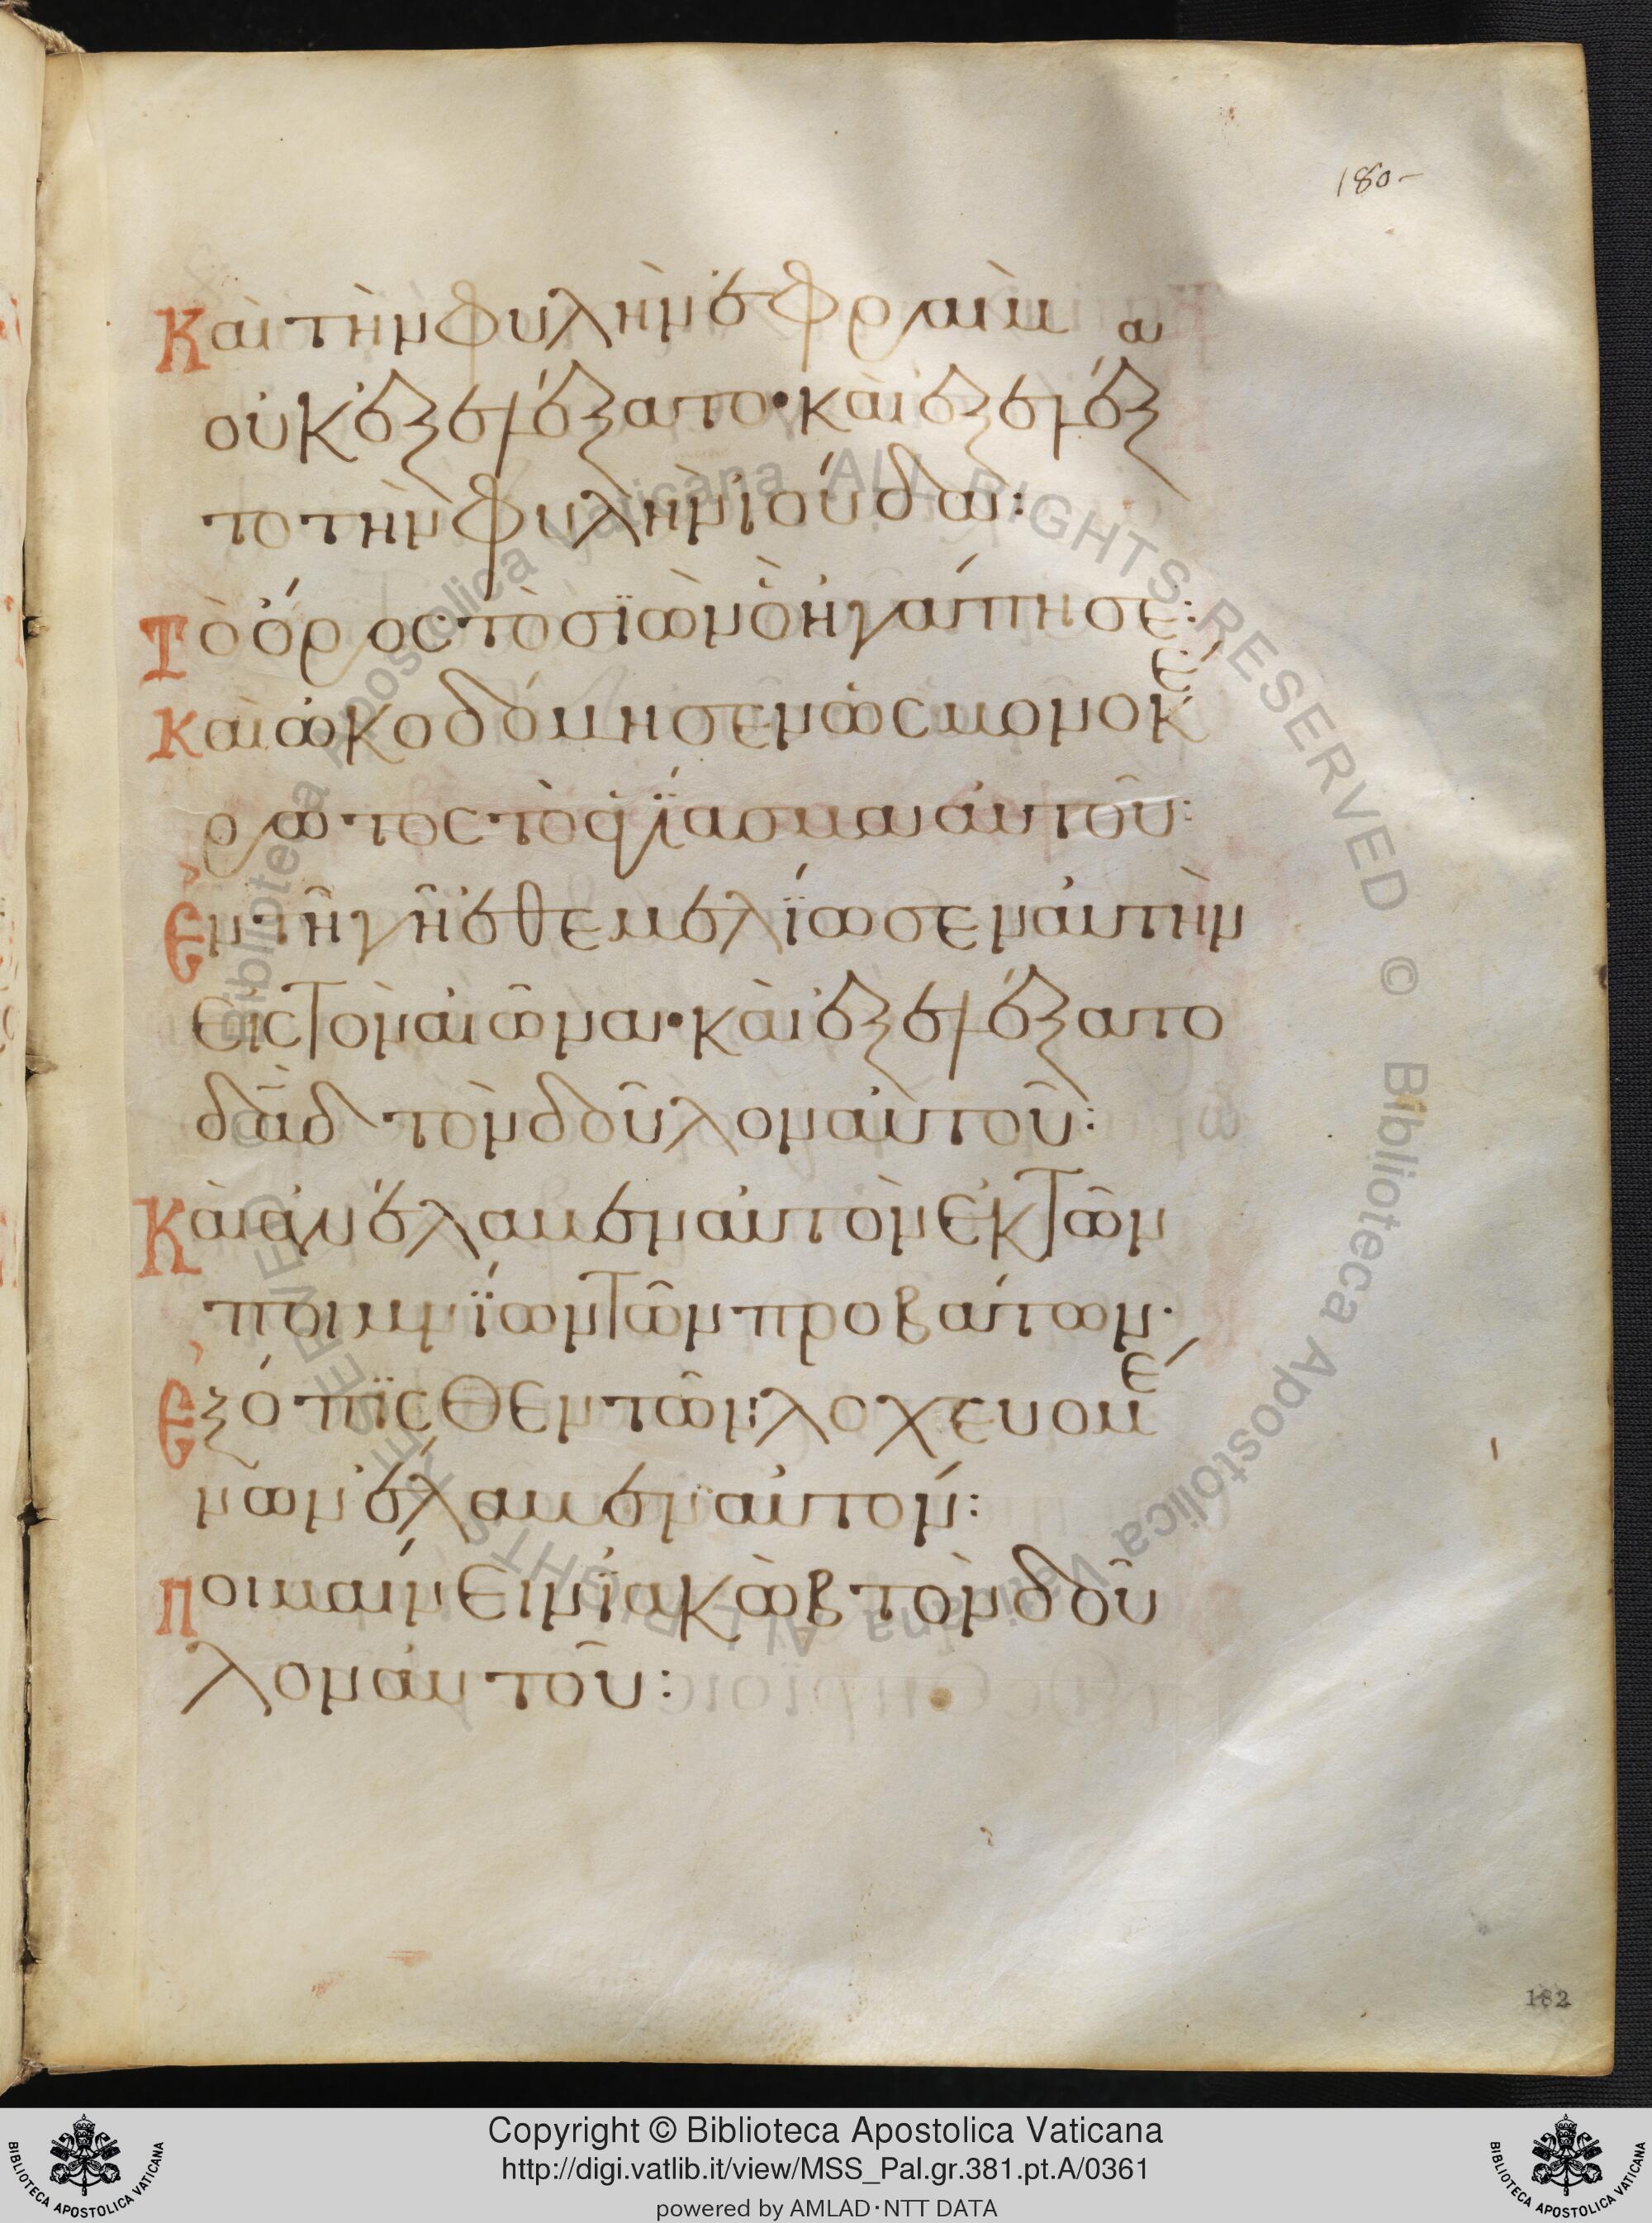 180-
Καὶ τὴν φυλὴν ἐφραὶμ
οὐκ ἐξελέξατο· καὶ ἐξελέξα
το τὴν φυλὴν ἰούδα:
Τὸ ὄρος τὸ σϊὼν ὃ ἠγάπησε:
Καὶ ὠκοδόμησεν ὡς μονοκέ
ρωτος τὸ ἁγϊασμα αὐτοῦ:
Ἐν τῆ γῆ ἐθεμελΐωσεν αὐτὴν
εἰς τὸν αἰῶνα· καὶ ἐξελέξατο
δᾱδ τὸν δοῦλον αὐτοῦ:
Καὶ ἀνέλαβεν αὐτὸν ἐκ τῶν
ποιμνΐων τῶν προβάτων·
Ἐξόπϊσθεν τῶν λοχευομέ
νων ἔλαβεν αὐτόν:
Ποιμαίνειν ἰακὼβ τὸν δοῦ
λον αὐτοῦ:
182
Biblioteca Apostolica Vaticana ALL RIGHTS RESERVED © Biblioteca Apostolica Vaticana ALL RIGHTS RESERVED ©
Copyright © Biblioteca Apostolica Vaticana
http://digi.vatlib.it/view/MSS_Pal.gr.381.pt.A/0361
powered by AMLAD·NTT DATA
BIBLIOTECA APOSTOLICA VATICANA
BIBLIOTECA APOSTOLICA VATICANA